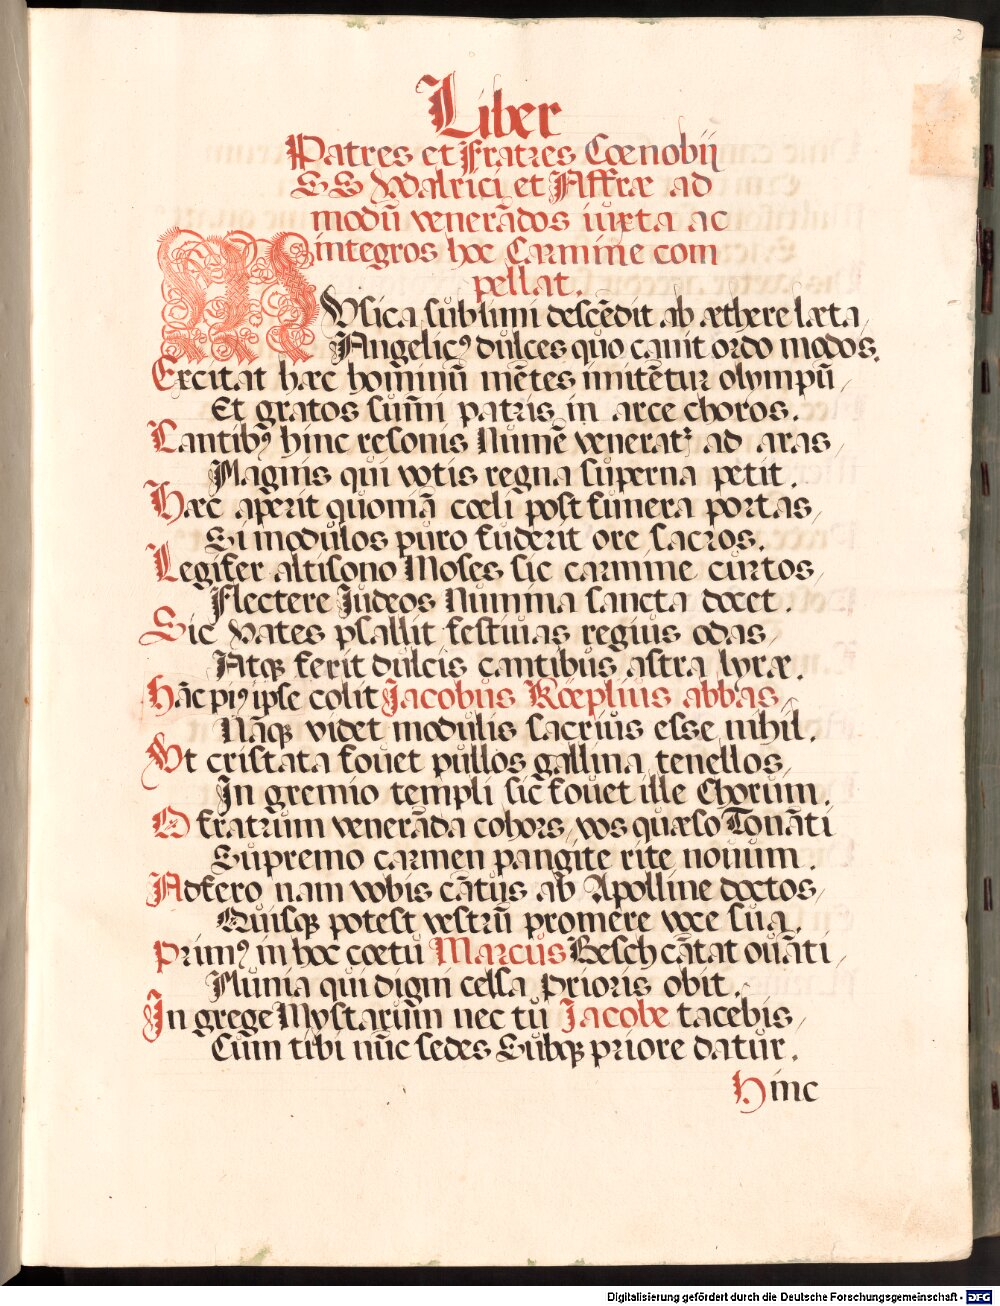 2
Liber
Patres et Fratres Cœnobij
SS Vdalrici et Affræ ad
modū venerādos iuxta ac
integros hoc Carmine com
pellat.
MVsica sublimi descēdit ab æthere læta,
Angelicꝰ dulces quo canit ordo modos.
Excitat hæc hominū mētes imitētur olympū,
Et gratos sum̄i patris in arce choros.
Cantibꝰ hinc resonis Numē venerat᷑ ad aras,
Magnis qui votis regna superna petit.
Hæc aperit quoniā cœli post funera portas,
Si modulos puro fuderit ore sacros.
Legifer altisono Moses sic carmine curtos,
Flectere Iudæos Numina sancta docet.
Sic Vates psallit festiuas regius odas,
Atqꝫ ferit dulcis cantibus astra lyræ.
Hāc piꝰ ipse colit Jacobus Kœplius abbas,
Nāqꝫ videt modulis sacrius esse nihil.
Vt cristata fouet pullos gallina tenellos,
In gremio templi sic fouet ille Chorum.
O fratrum venerāda cohors, vos quæso Tonāti
Supremo carmen pangite rite nouum.
Adfero nam vobis cātus ab Apolline doctos,
Quisqꝫ potest vestrū promere voce sua.
Primꝰ in hoc cœtu Marcus Besch cātat ouāti,
Munia qui digni cella prioris obit.
In grege Mystarum nec tu Jacobe tacebis,
Cum tibi nūc sedes Subqꝫ priore datur.
Hinc
Digitalisierung gefördert durch die Deutsche Forschungsgemeinschaft - DFG